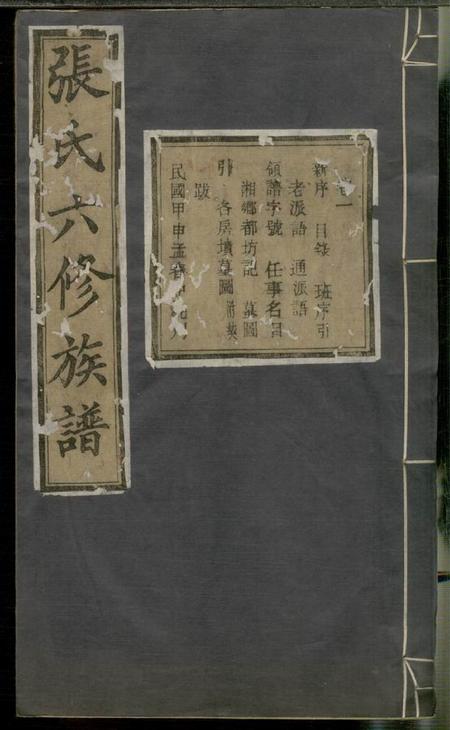 張氏六修族譜
卷一
新序 目錄 班序引
老派語 通派語
領譜字號 任事名目
湘鄉都坊記 墓圖
引 各房墳墓圖 附契
跋
民國甲申孟春